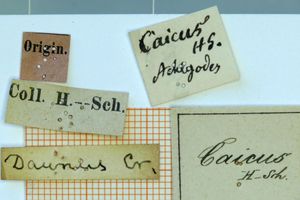 Origin.
Caicus
HS.
Coll. H.-Sch.
Daunus Cr.
Caicus
H-Sch.